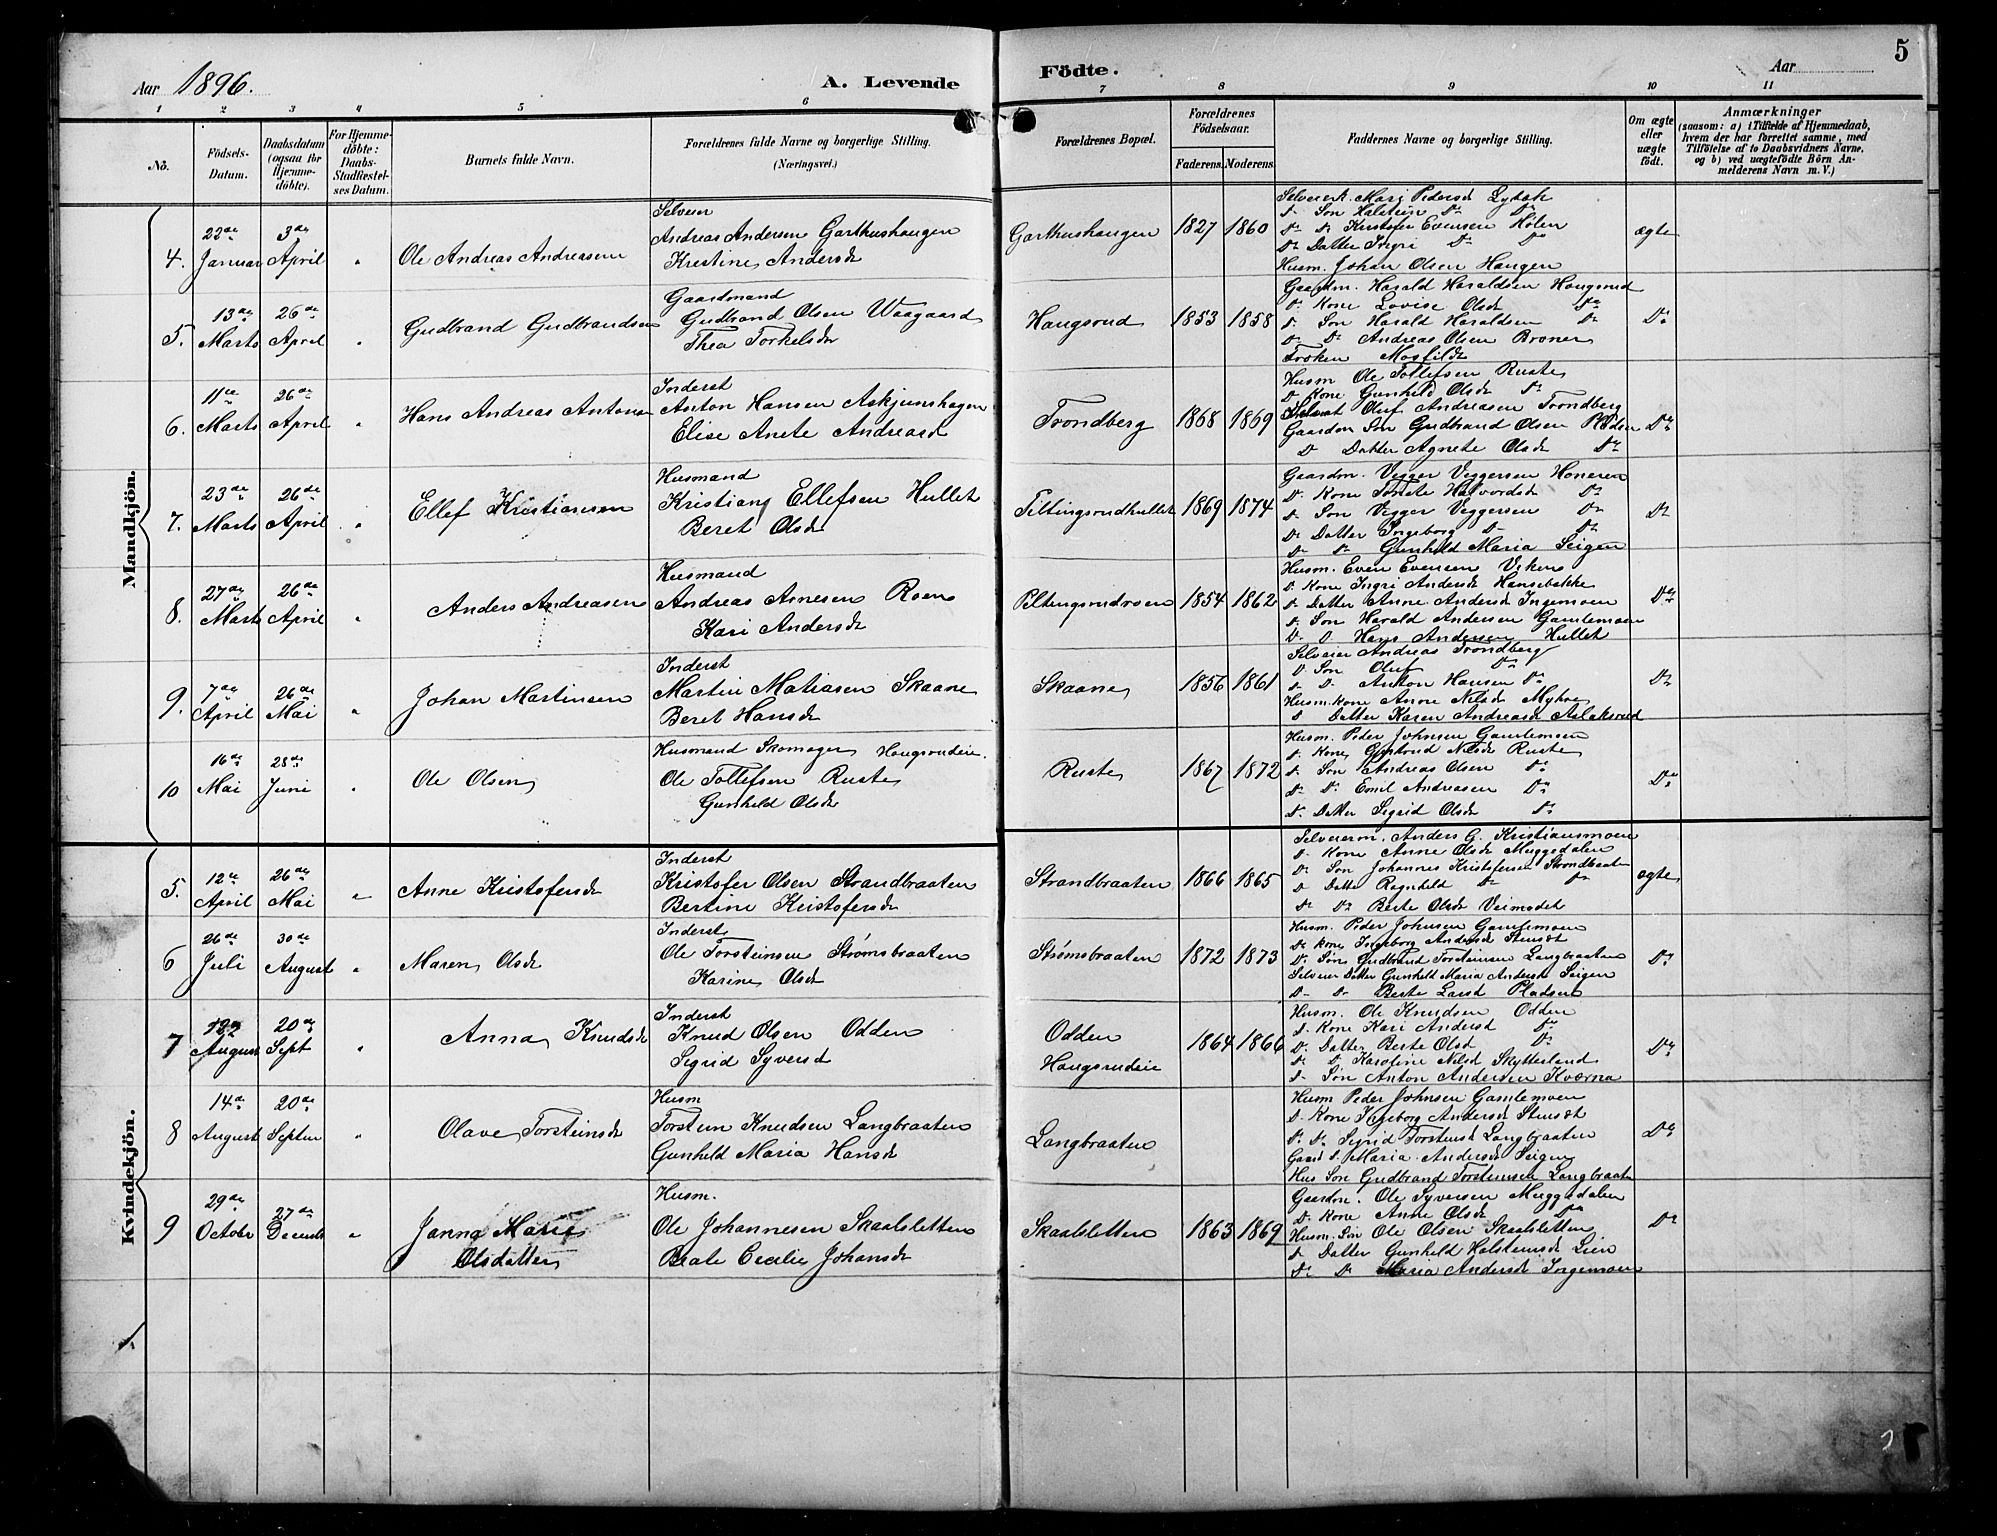 Aar 1896. A. Levende Födte. Aar 5
1 2 3 4 5 6 7 8 9 10 11
No. Födsels-Datum. Daabsdatum (ogsaa for Hjemme-döbte). For Hjemme-döbte: Daabs-Stadfæstel-ses Datum. Barnets fulde Navn. Forældrenes fulde Navne og borgerlige Stilling. (Næringsvei.) Forældrenes Bopæl. Forældrenes Födselsaar. Faderens. Moderens. Faddernes Navne og borgerlige Stilling. Om ægte eller uægte födt. Anmærkninger (saasom: a) i Tilfælde af Hjemmedaab, hvem der har forrettet samme, med Tilföielse af to Daabsvidners Navne, og b) ved uægtefödte Börn An-melderens Navn m. V.)
Mandkjön.
4. 22de Januar 3die April " Ole Andreas Andreasen
Selveier
Andreas Andersen Garthushaugen
Krestine Andersd
Garthushaugen 1827 1860
Selveierk. Mari Pedersd
Dr Son Halstein Do Do
Do Do Kristofer Evensen Holen
Do Datter Ingri Do Do
Husm. Johan Olsen Haugen
ægte
5. 13de Marts 26de April " Gudbrand Gudbrandsen
Gaardmand
Gudbrand Olsen Waagaard
Thea Torkelsdr
Haugsrud 1853 1858
Gaardm. Harald Haraldsen Haugsrud
Do Kone Lovise Olsdr Do
Do Son Harald Haraldsen Do
Do Do Andreas Olsen
Froken
Do
6. 11te Marts 26de April " Hans Andreas Antonsen
Inderst
Anton Hansen Askjumshagen
Elise Anete Andreasd
Trondberg 1868 1869
Husm Ole Tollefsen Ruste
Do Kone Gunhild Olsdr Do
Oluf Andreasen Trondberg
Gaardm Son Gudbrand Olsen
Do Datter Agnete Olsdr Do
Do
7. 23de Marts 26de April " Ellef Kristiansen
Husmand
Kristian Ellefsen Hullet
Beret Olsdr
Tiltingsrudhullet 1869 1874
Gaardm. Vegger Veggersen Honeren
Do Kone Tonete Halvordsdr Do
Do Son Vegger Veggersen Do
Do Datter Ingeborg Do Do
Do Do Gunhild Maria Seigen
Do
8. 27de Marts 26de April " Anders Andreasen
Husmand
Andreas Arnesen Roen
Kari Andersdr
Peltingsrudroen 1854 1862
Husm. Even Evensen Viken
Do Kone Ingri Andersdr Hansebakke
Do Datter Anne Andersdr Ingemoen
Do Son Harald Andersen Gamlemoen
Do D Hans Andersen Hullet
Do
9. 7de April 26de Mai " Johan Martinsen
Inderst
Martin Matiasen Skaane
Beret Hansdr
Skaane 1856 1861
Selveier Andreas Trondberg
D Son Oluf Do
Do D Anton Hansen Do
Husm.kone Anne Nilsd Myhre
Do Datter Karen Andreasdr Aslaksrud
Do
10 16de Mai 28de Juni " Ole Olsen
Husmand Skomager Haugsrudeie.
Ole Tollefsen Ruste
Gunhild Olsdr
Ruste 1867 1872
Husm. Peder Johnsen Gamlemoen
Do Kone Gjertrud Nilsdr Ruste
Do Son Andreas Olsen Do
Do Do Emil Andreasen Do
Do Datter Sigrid Olsdr Do
Do
Kvindekjön.
5. 12te April 26de Mai " Anne Kristofersdr
Inderst
Kristofer Olsen Strandbraaten
Bertine Kristofersdr
Strandbraaten 1866 1865
Selveierm. Anders G. Kristiansmoen
Do Kone Anne Olsdr Muggedalen
Do Son Johannes Kristofersen Strandbraaten
Do Datter Ragnhild Do Do
Do Do Berte Olsdr Veimodet
ægte
6 26de Juli 30de August " Maren Olsdr
Inderst
Ole Torsteinsen Strømsbraaten
Karine Olsdr
Strømsbraaten 1872 1873
Husm. Peder Johnsen Gamlemoen
Do kone Ingeborg Andersdr
Do Søn Gudbrand Torsteinsen Langbraaten
Selveier Datter Gunhild Maria Andersdr Seigen
Do Do Berte Larsd Pladsen
Do
7 12te August 20de Sept " Anna Knudsdr
Inderst
Knud Olsen Odden
Sigrid Syversd
Odden
Haugsrudeie 1864 1866
Husm. Ole Knudsen Odden
Do Kone Kari Andersd Do
Do Datter Berte Olsd Do
Do D Karoline Nilsd Skytterland
Do Søn Anton Andersen Kværna
Do
8 14de August 20de Septem " Olave Torsteinsdr
Husm
Torstein Knudsen Langbraaten
Gunhild Maria Hansdr
Langbraaten
Husm Peder Johnsen Gamlemoen
Do Kone Ingeborg Andersdr
Do Do Sigrid Torsteinsd Langbraaten
Gaard D Maria Andersdr Seigen
Hus Son Gudbrand Torsteinsen Langbraaten
Do
9 29de October 27de Decemb " Janna Marie Olsdatter
Husm.
Ole Johannesen Skaalsletten
Beate Cecilie Johansdr
Skaalsletten 1863 1869
Gaardm. Ole Syversen Muggedalen
Do Kone Anne Olsdr Do
Husm. Son Ole Olsen Skaalsletten
Do Datter Gunhild Halsteinsdr Lien
Do Do Maria Andersdr Ingemoen
Do